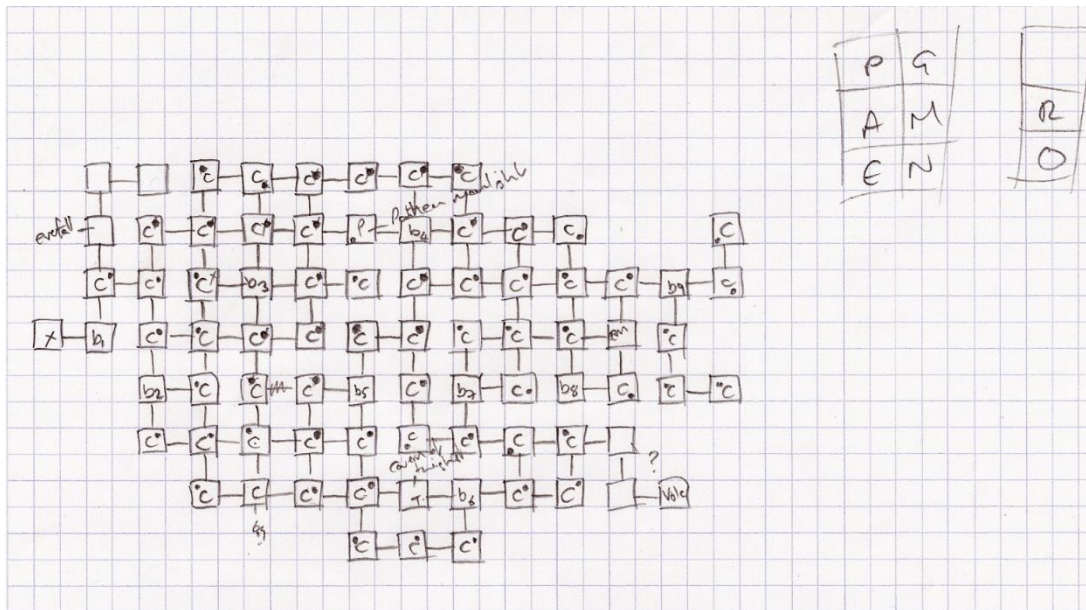 P G
A M R
E N O
c c c c c c
Pathen moonlight
evefall c c c c P b4 c c c c
c c c b3 c c c c c c c b9 c
x b1 c c c c c c c c c c
b2 c c c b5 c b7 c b8 c c c
c c c c c c c c c
?
cavern of
c c c c T. b6 c c Volc
c c c